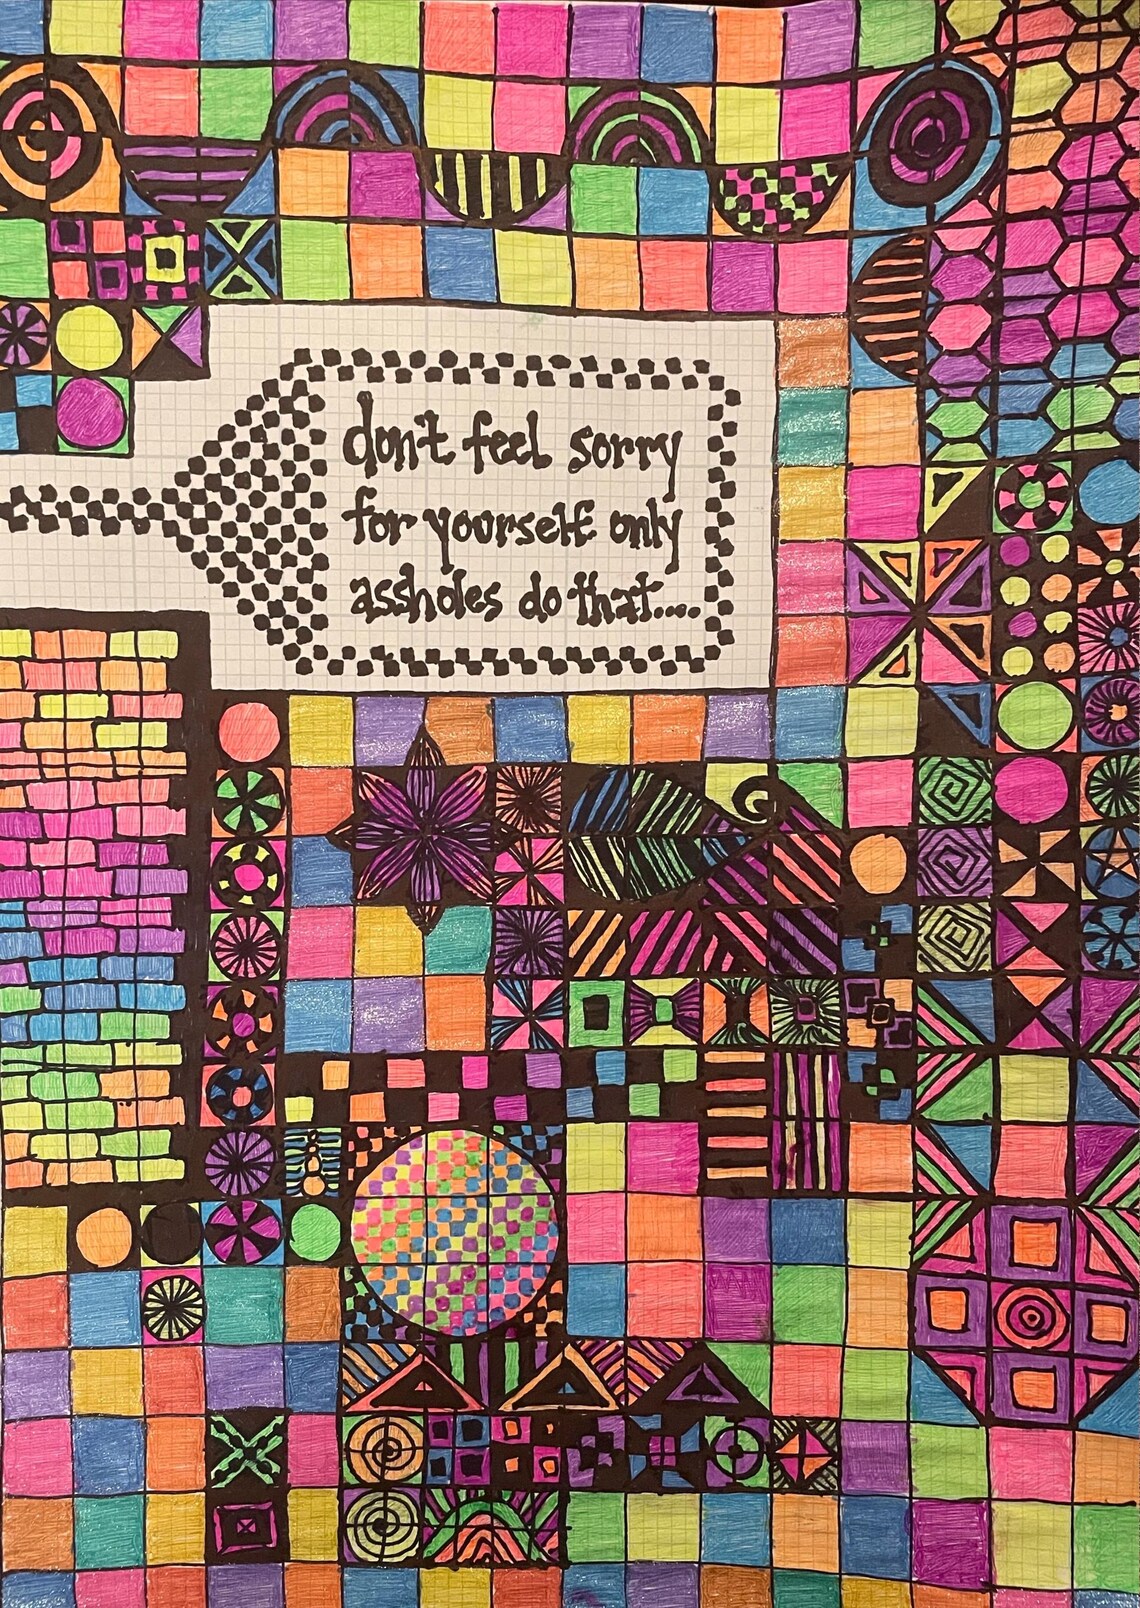 don't feel sorry
for yourself only
assholes do that....